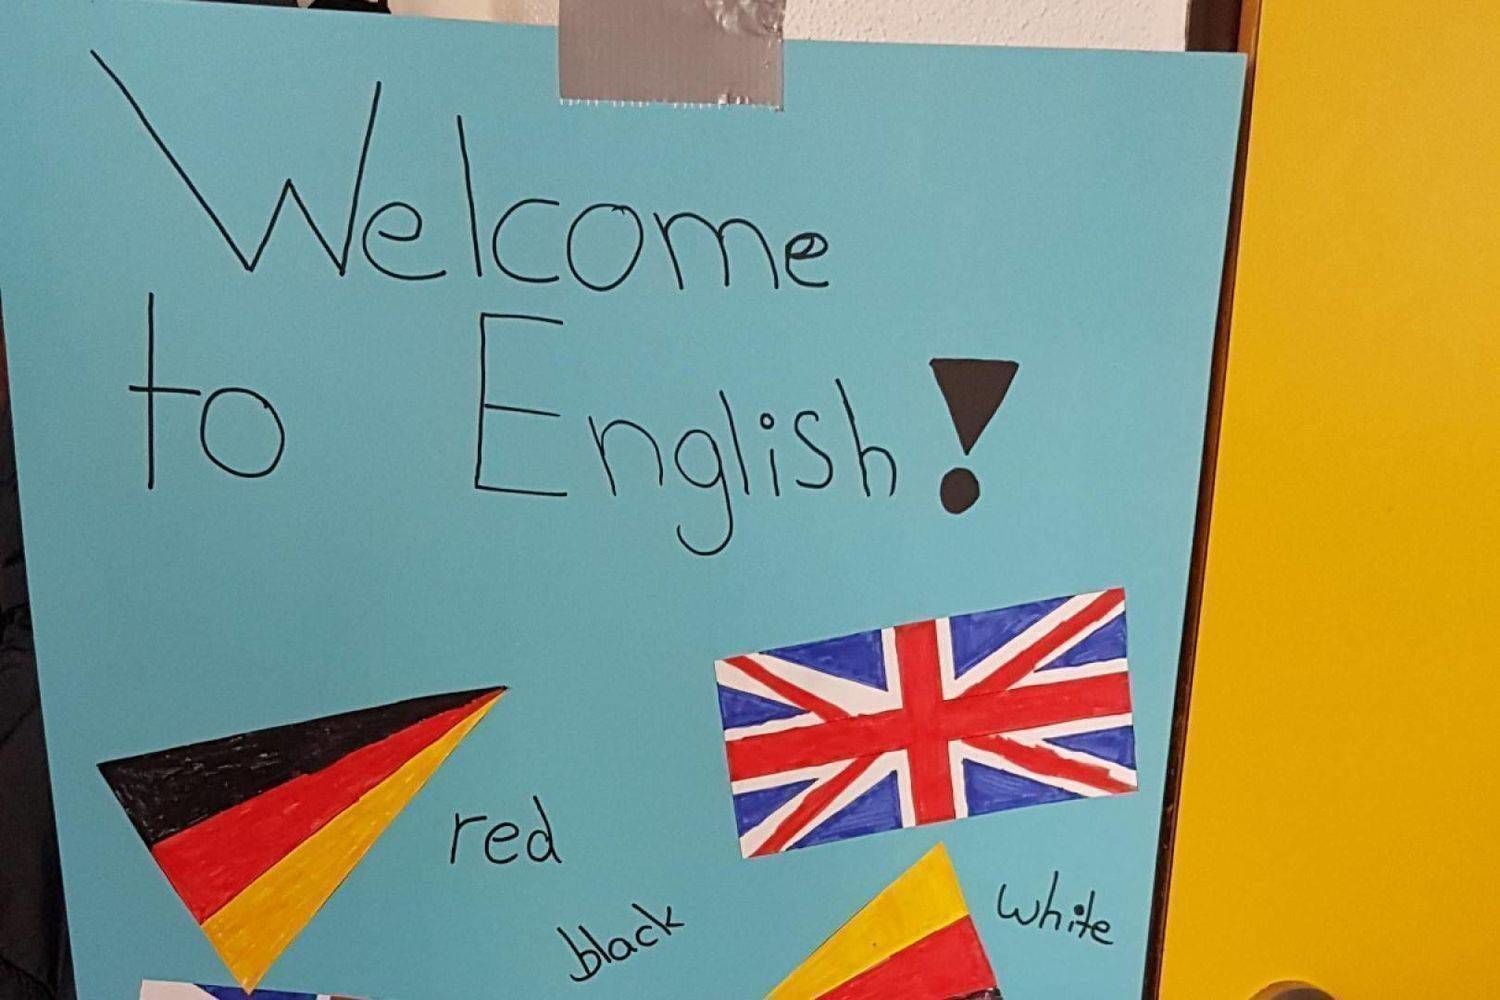 Welcome
to English!
red
white
black